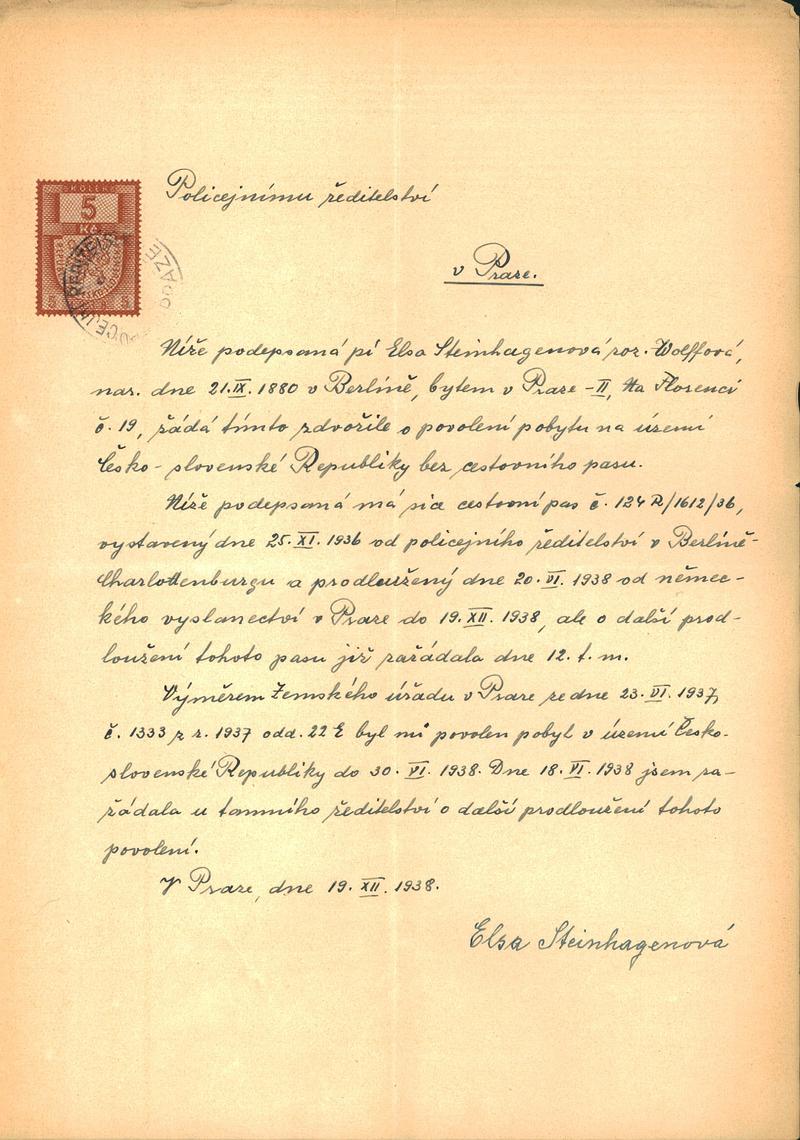 KOLEK
5
Kč
Policejnímu ředitelství
v Praze.
Níže podepsaná pí Elsa Steinhagenová roz. Wolffová,
nar. dne 21.IX.1880 v Berlíně, bytem v Praze-II, Na Florenci
č.19, žádá tímto zdvořile o povolení pobytu na území
Česko-slovenské Republiky bez cestovního pasu.
Níže podepsaná má sice cestovní pas č. 124 R/1612/36,
vystavený dne 25.XI.1936 od policejního ředitelství v Berlíně-
Charlottenburgu a prodloužený dne 20.VI.1938 od němec-
kého vyslanectví v Praze do 19.XII.1938, ale o další prod-
loužení tohoto pasu již zažádala dne 12.t.m.
Výměrem Zemského úřadu v Praze ze dne 23.VI.1937,
č.1333 z r.1937 odd.22 E byl mi povolen pobyt v území Česko-
slovenské Republiky do 30.VI.1938. Dne 18.VI.1938 jsem za-
žádala u tamního ředitelství o další prodloužení tohoto
povolení.
V Praze, dne 19.XII.1938.
Elsa Steinhagenová